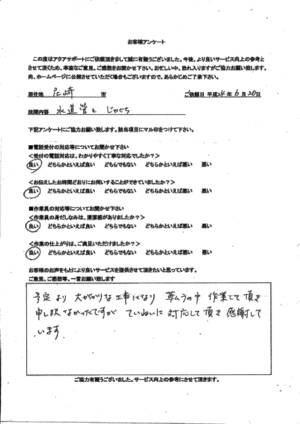 お客様アンケート
この度はアクアサポートにご依頼頂きまして誠に有難うございました。今後、より良いサービス向上の参考と
させて頂くため、率直なご意見、ご感想をお聞かせ下さい。お忙しい中、恐れ入りますがご協力お願い致します。
尚、ホームページに公開させていただく場合もございますので、あらかじめご了承下さい。
居住地 尼崎 市 ご依頼日 平成24年6月20日
依頼内容 水道管と じゃぐち
下記アンケートにご協力お願い致します。該当項目にマル印をつけて下さい。
■電話受付の対応等についてお聞かせ下さい
<受付の電話対応は、わかりやすく丁寧な対応でしたか?>
良い どちらかといえば良い どちらでもない どちらかといえば悪い 悪い
<お伝えしたお時間どおりにお伺いすることができていましたか?>
良い どちらかといえば良い どちらでもない どちらかといえば悪い 悪い
■作業員の対応等についてお聞かせ下さい
<作業員の身だしなみは、清潔感がありましたか?>
良い どちらかといえば良い どちらでもない どちらかといえば悪い 悪い
<作業の仕上がりは、ご満足いただけましたか?>
良い どちらかといえば良い どちらでもない どちらかといえば悪い 悪い
お客様のお声をもとにより良いサービスを提供させて頂きたいと思っています。
ご意見、ご感想等、一言お願い致します
予定より 大がかりな工事になり 暑い中 作業して頂き
申し訳なかったですが ていねいに 対応して頂き 感謝して
います。
ご協力有難うございました。サービス向上の参考にさせて頂きます。